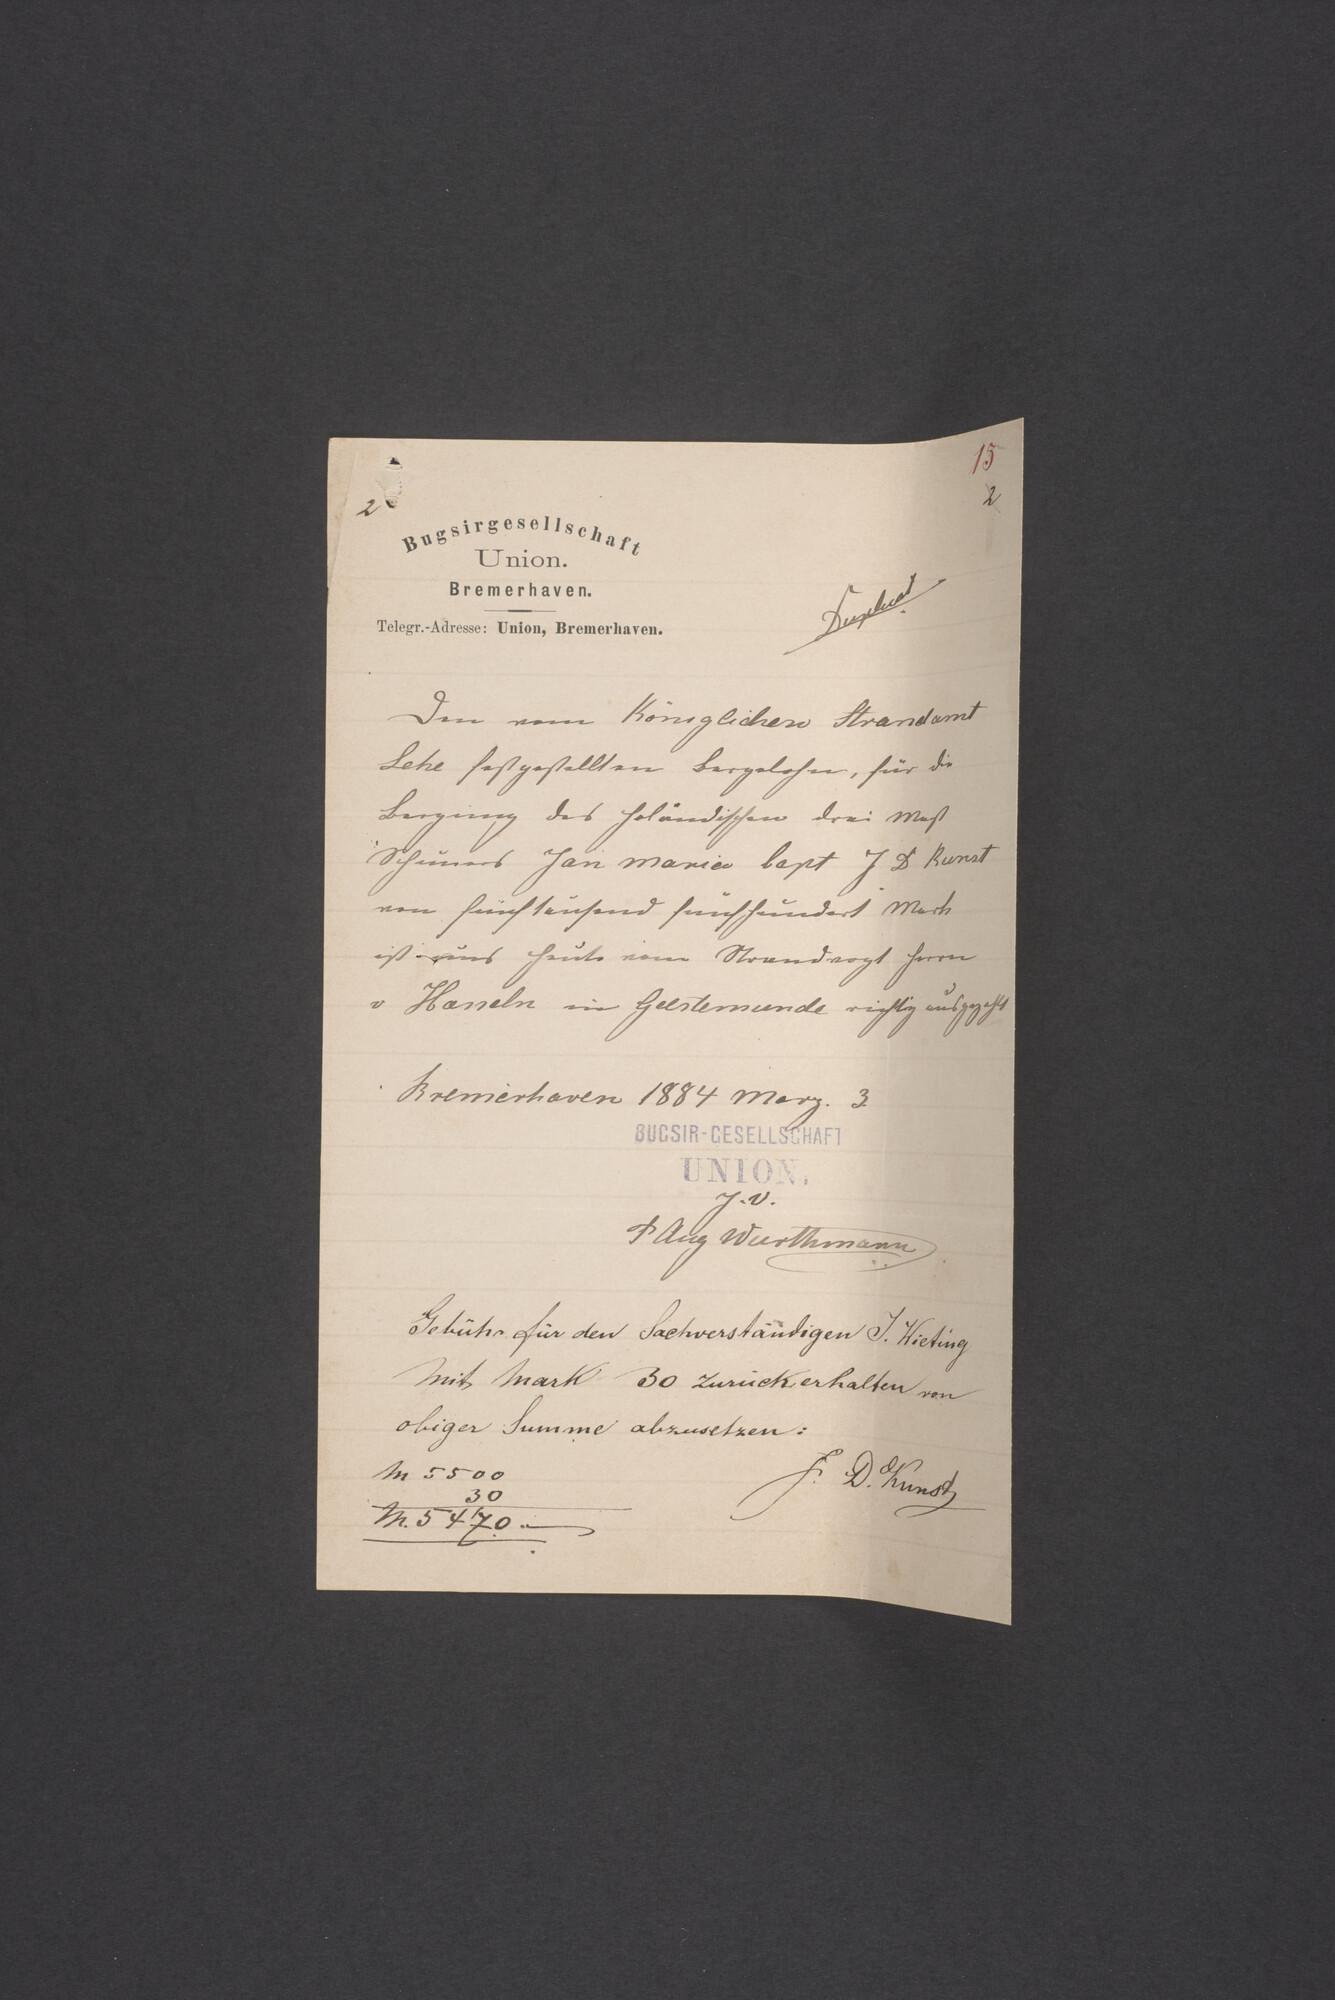 15
2
2
Bugsirgesellschaft
Union.
Bremerhaven.
Telegr.-Adresse: Union, Bremerhaven.
Duplicat
Den vom Königlichen Strandamt
Lehe festgestellten Bergelohn, für die
Bergung des holändischen drei Mast
Schuners Jan Marie Capt J D Kunst
von fünftausend fünfhundert Mark
ist uns heute vom Strandvogt Herrn
v Hasseln in Geestemunde richtig ausgezahlt
Bremerhaven 1884 Marz. 3
BUGSIR-GESELLSCHAFT
UNION.
J. V.
Aug Wurthmann
Gebühr für den Sachverständigen J. Wieting
mit Mark 30 zurückerhalten von
obiger Summe abzusetzen:
M 5500
30
M. 5470.-
J. D. Kunst